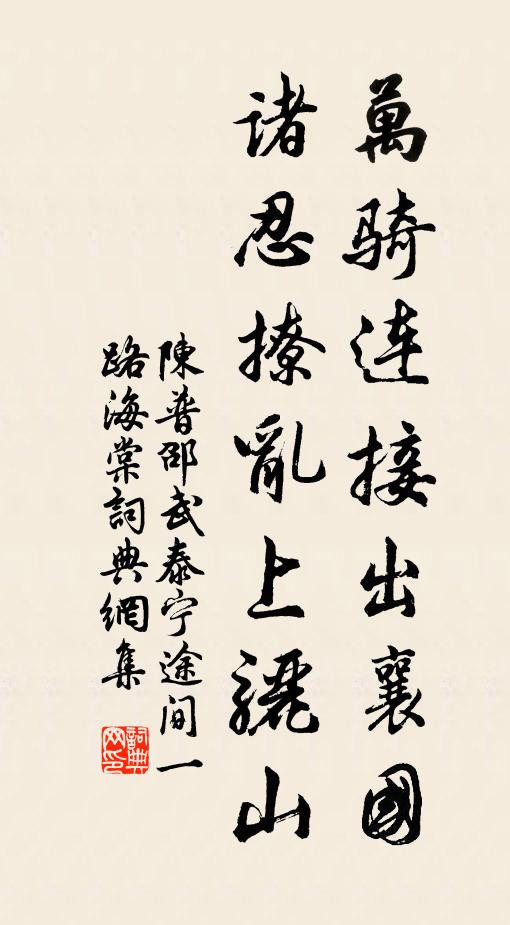 萬騎連接出襄國
諸忍撩亂上驪山
陳普邵武泰宁途间一
路海棠詞典網集
詞典网印